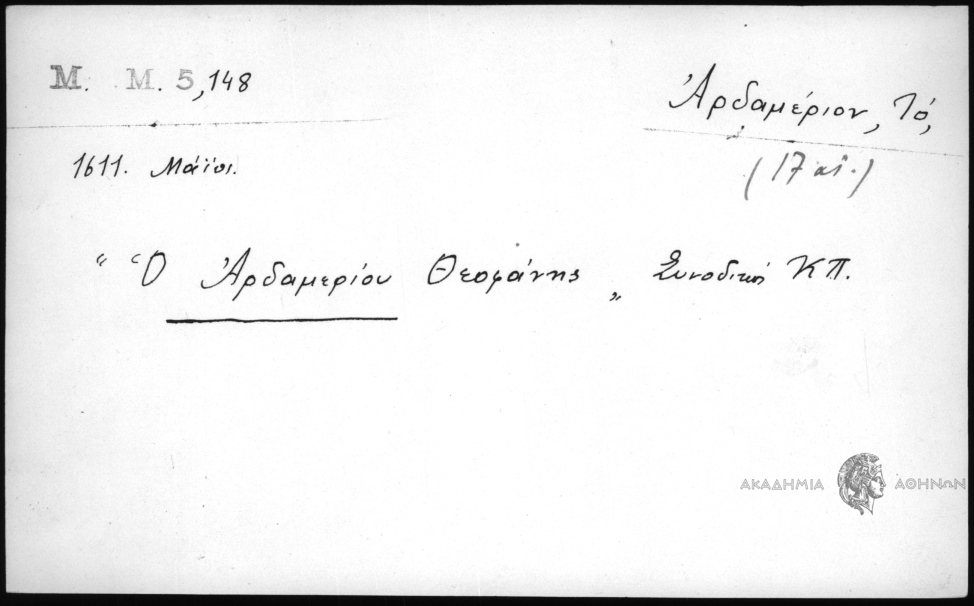 Μ. Μ. 5,148
Ἀρδαμέριον, Τό,
(17 αἰ.)
1611. Μάϊος.
“ Ὁ Ἀρδαμερίου Θεοφάνης „ Συνοδικός ΚΠ.
ΑΚΑΔΗΜΙΑ ΑΘΗΝΩΝ